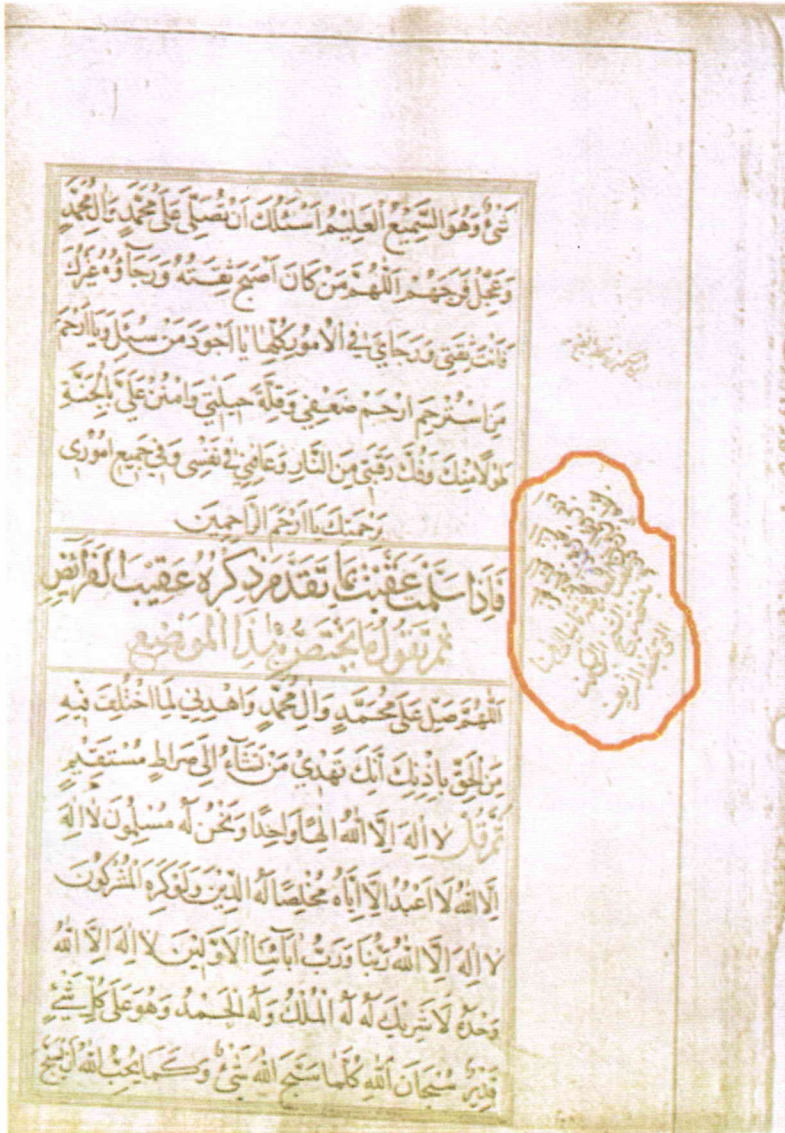 شَيْءٌ وَهُوَ السَّمِيعُ الْعَلِيمُ اَسْئَلُكَ اَنْ تُصَلِّىَ عَلَى مُحَمَّدٍ وَآلِ مُحَمَّدٍ
وَعَجِّلْ فَرَجَهُمْ اَللّٰهُمَّ مَنْ كَانَ اَصْبَحَ ثِقَتُهُ وَرَجَآؤُهُ غَيْرُكَ
فَاَنْتَ ثِقَتِى وَرَجَائِي فِى الْاُمُورِ كُلِّهَا يَا اَجْوَدَ مَنْ سُئِلَ وَيَا اَرْحَمَ
مَنِ اسْتُرْحِمَ ارْحَمْ ضَعْفِي وَقِلَّةَ حِيلَتِي وَامْنُنْ عَلَيَّ بِالْجَنَّةِ
طَوْلًا مِنْكَ وَفُكَّ رَقَبَتِي مِنَ النَّارِ وَعَافِنِي فِى نَفْسِى وَفِي جَمِيعِ اُمُوْرِى
بِرَحْمَتِكَ يَا اَرْحَمَ الرَّاحِمِينَ
فَاِذَا سَلَّمْتَ عَقَّبْتَ بِمَا تَقَدَّمَ ذِكْرُهُ عَقِيبَ الْفَرَآئِضِ
ثُمَّ تَقُولُ مَا يَخْتَصُّ بِهٰذَا الْمَوْضِعِ
اَللّٰهُمَّ صَلِّ عَلَى مُحَمَّدٍ وَآلِ مُحَمَّدٍ وَاهْدِنِي لِمَا اخْتُلِفَ فِيهِ
مِنَ الْحَقِّ بِاِذْنِكَ اِنَّكَ تَهْدِي مَنْ تَشَآءُ اِلَى صِرَاطٍ مُسْتَقِيمٍ
ثُمَّ قُلْ لَا اِلٰهَ اِلَّا اللّٰهُ اِلٰهًا وَاحِدًا وَنَحْنُ لَهُ مُسْلِمُونَ لَا اِلٰهَ
اِلَّا اللّٰهُ لَا اَعْبُدُ اِلَّا اِيَّاهُ مُخْلِصًا لَهُ الدِّيْنَ وَلَوْ كَرِهَ الْمُشْرِكُونَ
لَا اِلٰهَ اِلَّا اللّٰهُ رَبُّنَا وَرَبُّ اٰبَآئِنَا الْاَوَّلِينَ لَا اِلٰهَ اِلَّا اللّٰهُ
وَحْدَهُ لَا شَرِيكَ لَهُ لَهُ الْمُلْكُ وَلَهُ الْحَمْدُ وَهُوَ عَلَى كُلِّ شَيْءٍ
قَدِيرٌ سُبْحَانَ اللّٰهِ كُلَّمَا سَبَّحَ اللّٰهَ شَيْءٌ وَكَمَا يُحِبُّ اللّٰهُ اَنْ يُسَبَّحَ